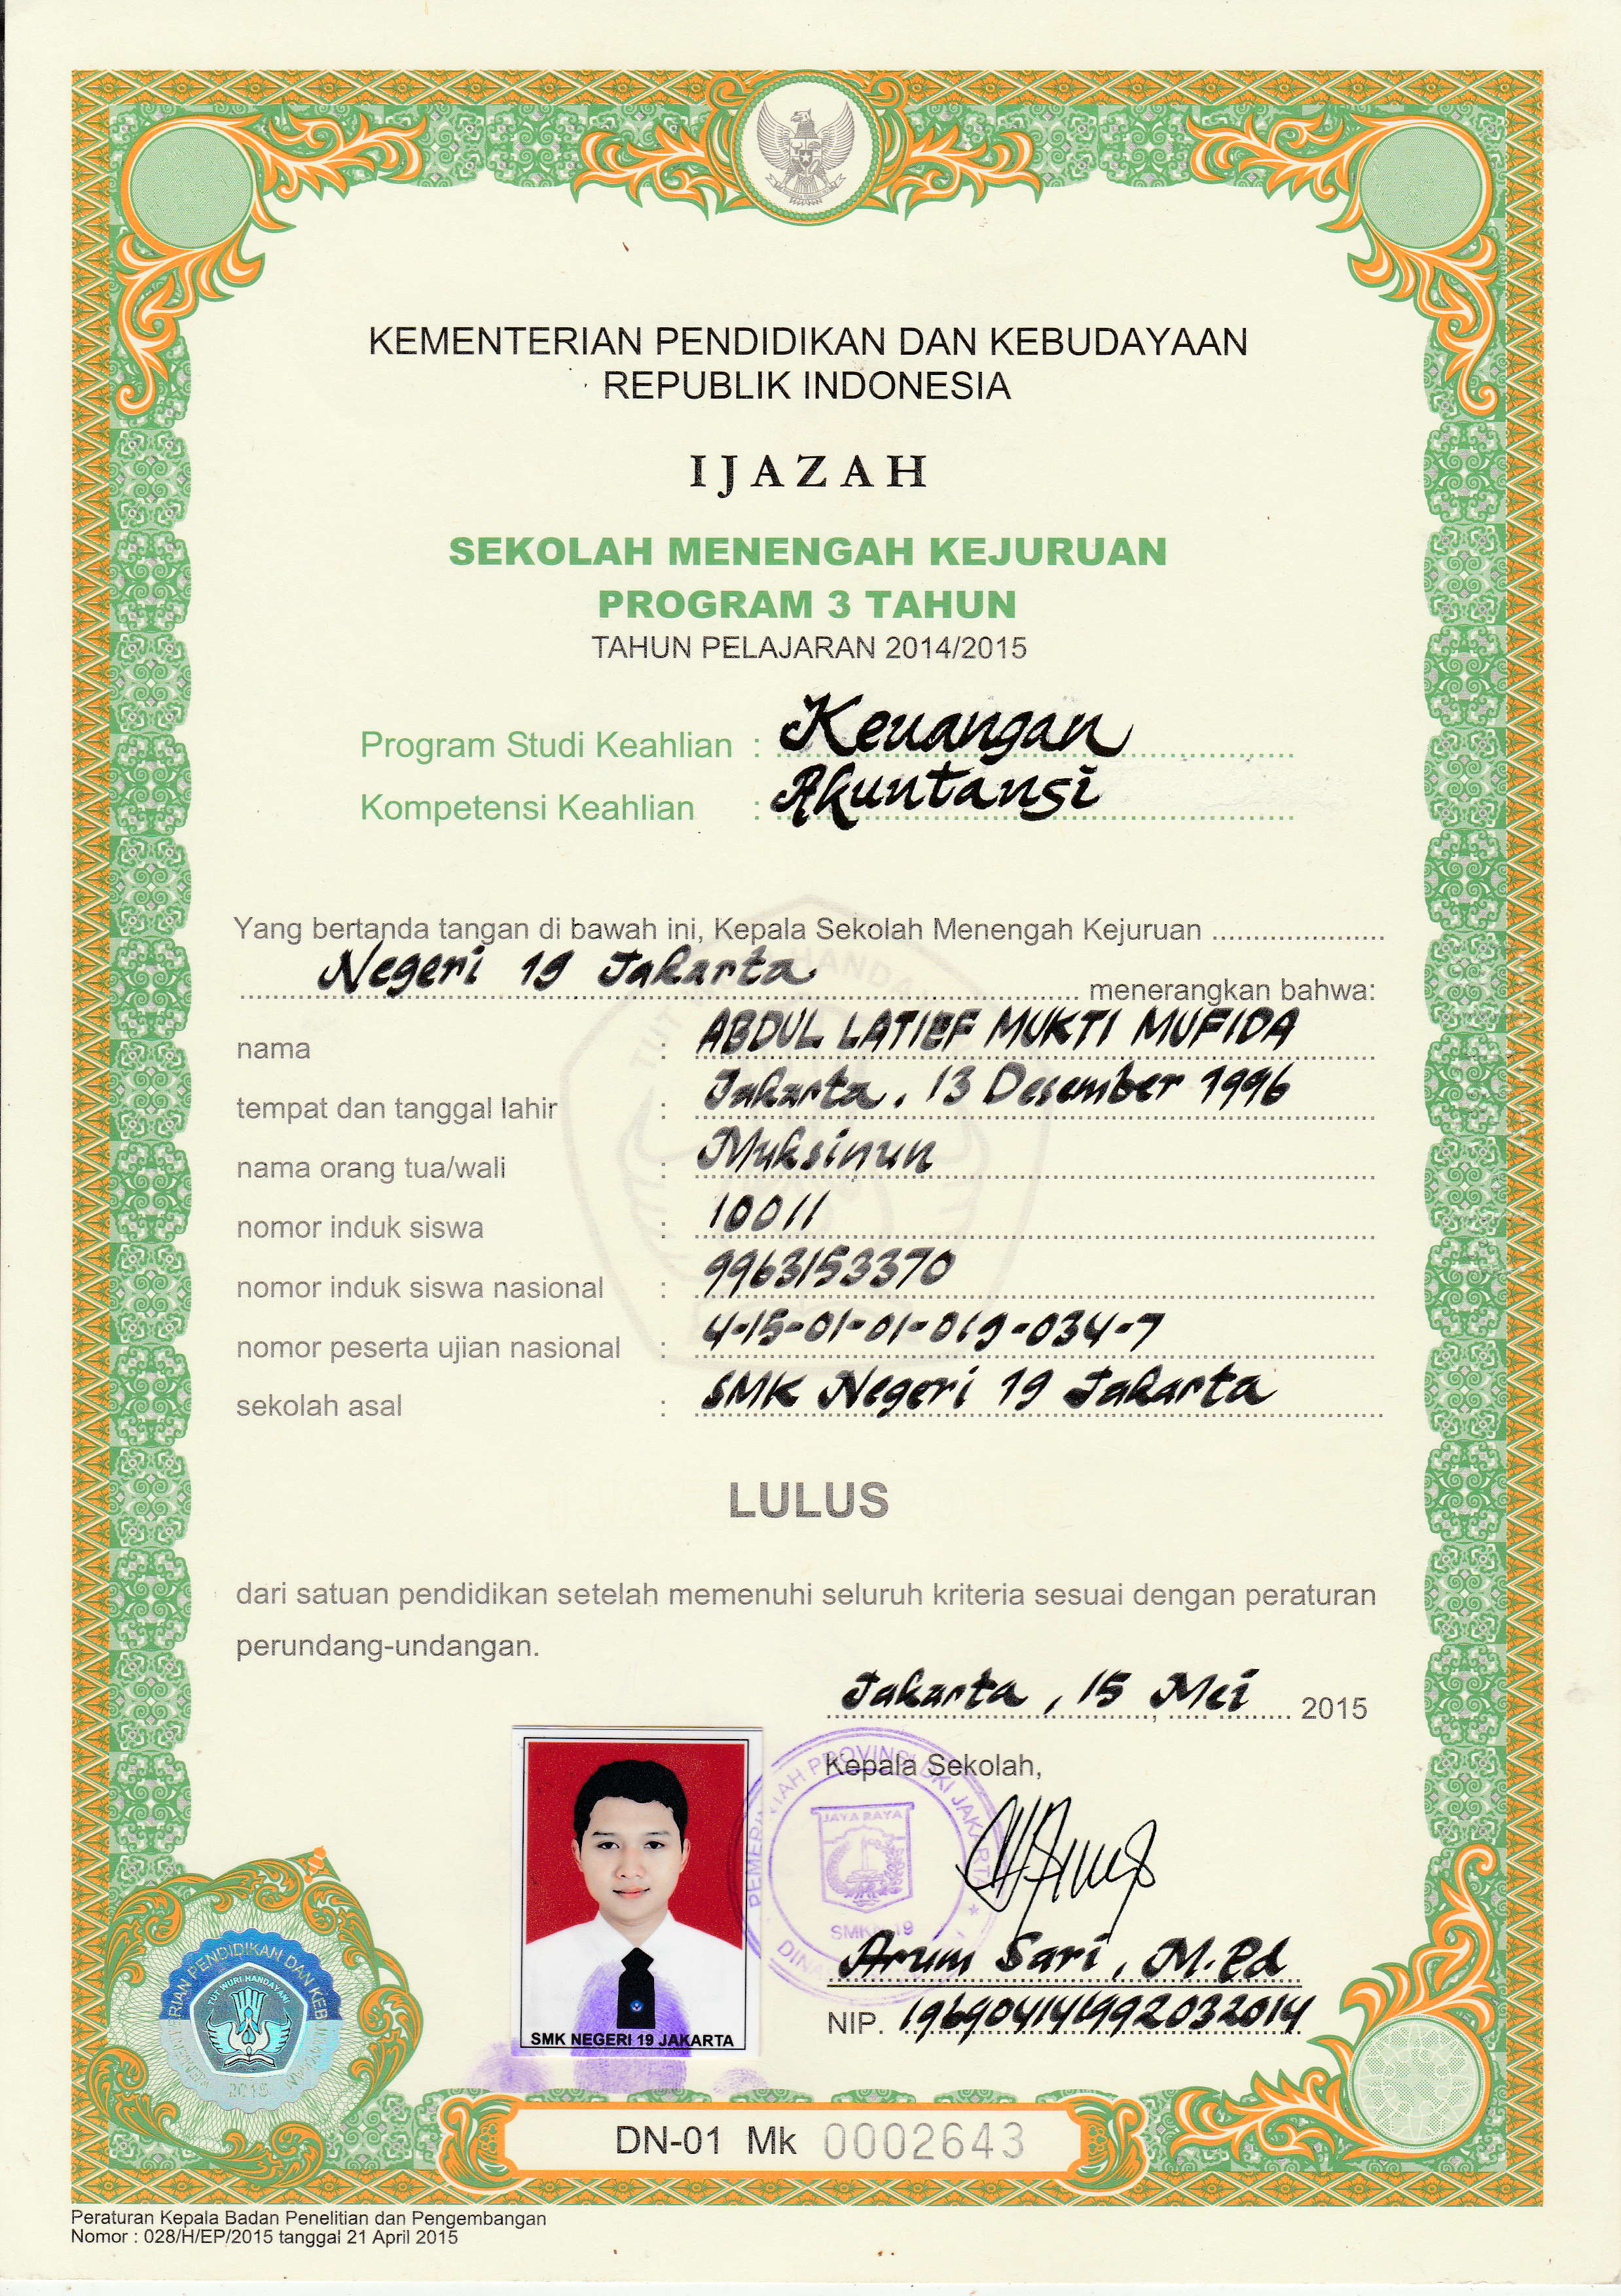 KEMENTERIAN PENDIDIKAN DAN KEBUDAYAAN
REPUBLIK INDONESIA
IJAZAH
SEKOLAH MENENGAH KEJURUAN
PROGRAM 3 TAHUN
TAHUN PELAJARAN 2014/2015
Program Studi Keahlian : Keuangan
Kompetensi Keahlian : Akuntansi
Yang bertanda tangan di bawah ini, Kepala Sekolah Menengah Kejuruan
Negeri 19 Jakarta menerangkan bahwa:
nama : ABDUL LATIEF MUKTI MUFIDA
tempat dan tanggal lahir : Jakarta, 13 Desember 1996
nama orang tua/wali : Muksinun
nomor induk siswa : 10011
nomor induk siswa nasional : 9963153370
nomor peserta ujian nasional : 4-15-01-01-019-034-7
sekolah asal : SMK Negeri 19 Jakarta
LULUS
dari satuan pendidikan setelah memenuhi seluruh kriteria sesuai dengan peraturan
perundang-undangan.
Jakarta, 15 Mei 2015
Kepala Sekolah,
PROVINSI DKI JAKARTA
JAYA RAYA
Arum Sari, M.Pd
NIP. 196904141992032014
SMK NEGERI 19 JAKARTA
PENDIDIKAN DAN
TUT WURI HANDAYANI
2015
DN-01 Mk 0002643
Peraturan Kepala Badan Penelitian dan Pengembangan
Nomor : 028/H/EP/2015 tanggal 21 April 2015